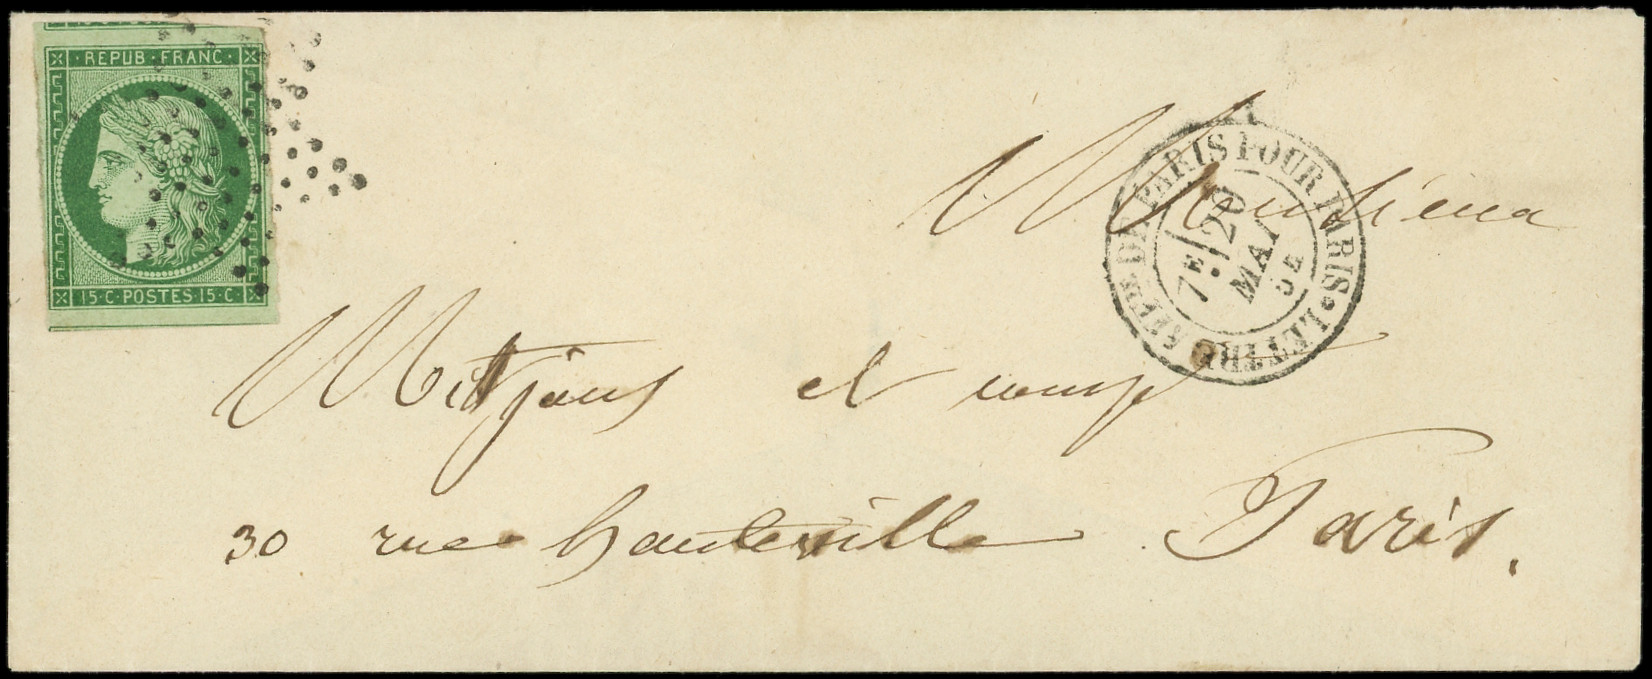 REPUB · FRANC ·
15 · C · POSTES · 15 · C ·
DE PARIS POUR PARIS • LETTRE AFFR
7E
20
MAI
52
Monsieur
Mitjans et
30 rue hauteville Paris.